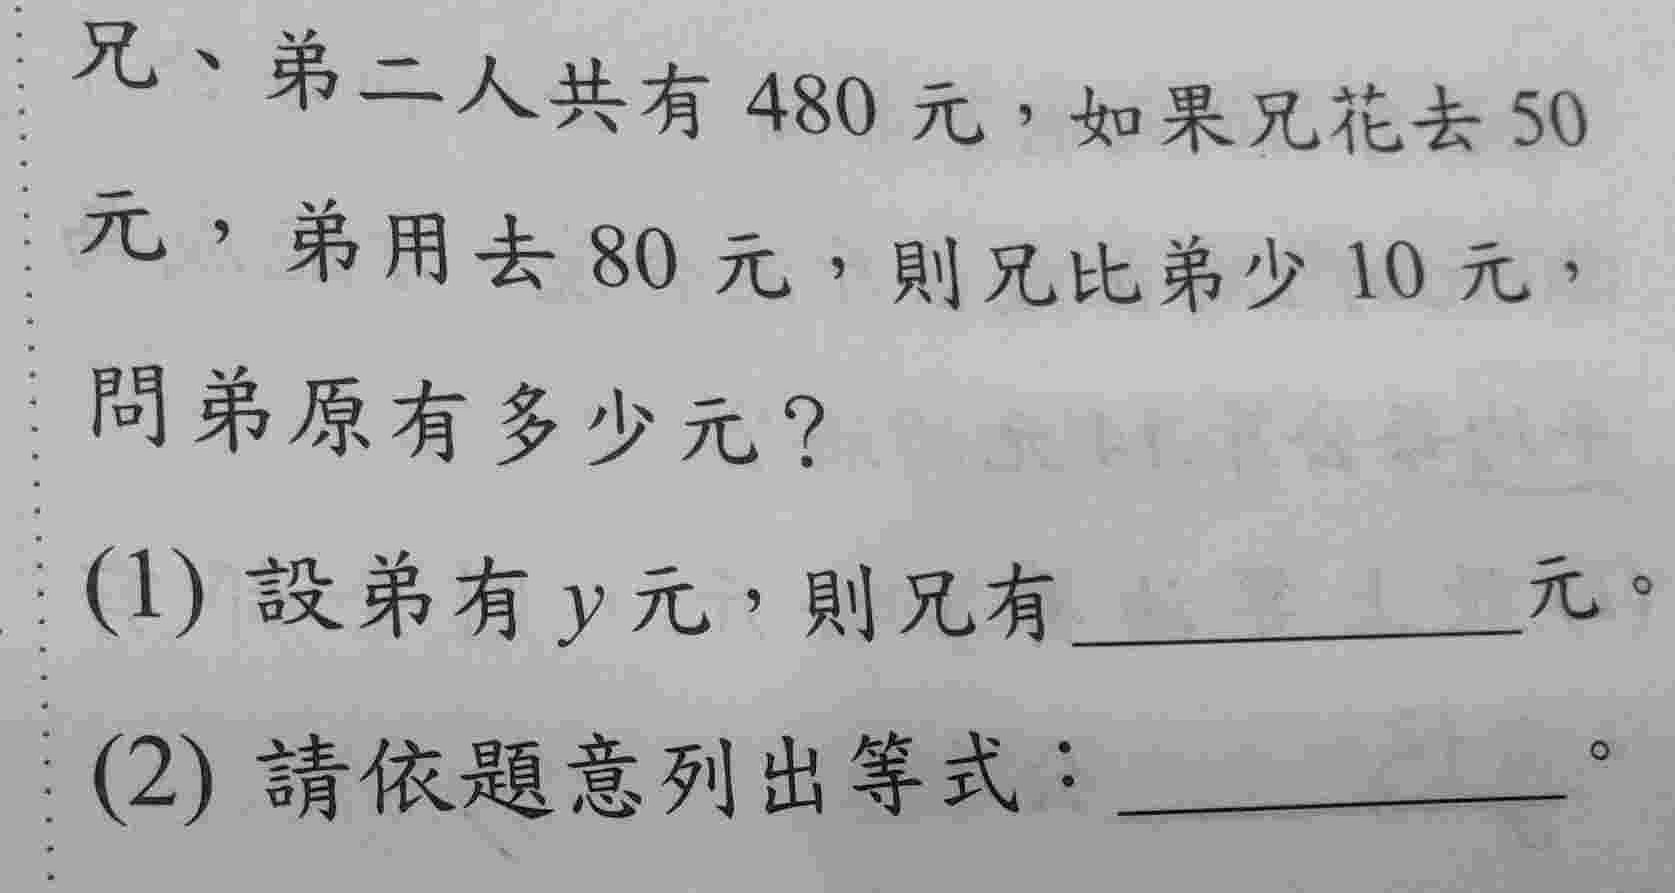 兄、弟二人共有 480 元，如果兄花去 50
元，弟用去 80 元，則兄比弟少 10 元，
問弟原有多少元？
(1) 設弟有 y 元，則兄有__________元。
(2) 請依題意列出等式：__________。